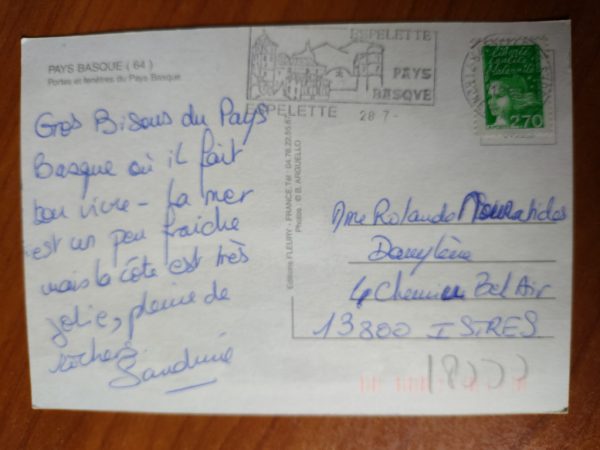 PAYS BASQUE ( 64 )
Portes et fenêtres du Pays Basque
ESPELETTE
PAYS
BASQUE
ESPELETTE
28 7 -
Liberté
2,70
Gros Bisous du Pays
Basque où il fait
bon vivre - La mer
est un peu fraiche
mais la côte est très
jolie, pleine de
rochers
Sandrine
Editions FLEURY - FRANCE, Tél : 04.78.22.55.67
Photos : © B. ARGUELLO
Mme Rolande
4 Chemin Bel Air
13800 ISTRES